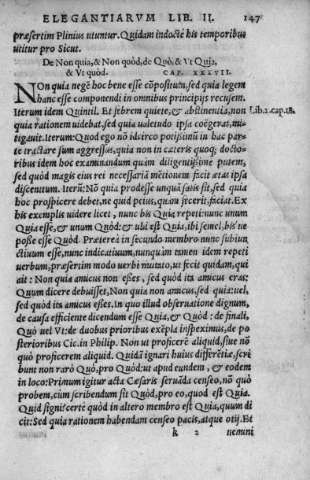 ELEGANTIARVM LIB. II. 147
præsertim Plinius utuntur. Quidam indoctè his temporibus
utitur pro Sicut.
De Non quia, & Non quòd, de Quò, & Vt Quia,
& Vt quòd. CAP. XXXVII.
NOn quia negē hoc bene esse cōpositum, sed quia legem
hanc esse componendi in omnibus principijs recusem.
Iterum idem Quintil. Et febrem quiete, & abstinentia, non Lib.2.cap.18.
quia rationem uidebat, sed quia ualetudo ipsa coëgerat, mi⸗
tigauit. Iterum: Quod ego nō idcirco potissimū in hac par⸗
te tractare sum aggressus, quia non in cæteris quoq; docto⸗
ribus idem hoc examinandum quàm diligentissime putem,
sed quòd magis eius rei necessariā mētionem facit ætas ipsa
discentum. Iterū: Nō quia prodesse unquā satis sit, sed quia
hoc prospicere debet, ne quid peius, quàm fecerit, faciat. Ex
his exemplis uidere licet, nunc bis Quia repeti: nunc unum
Quia esse, & unum Quòd: & ubi est Quia, ibi semel, bis ne
posse esse Quòd. Præterea in secundo membro nunc subiun
ctiuum esse, nunc indicatiuum, nunquàm tamen idem repeti
uerbum, præsertim modo uerbi mutato, ut fecit quidam, qui
ait: Non quia amicus non esses, sed quòd ita amicus eras:
Quum dicere debuisses, Non quia non amicus, sed quia: uel,
sed quòd ita amicus esses. in quo illud obseruatione dignum,
de causa efficiente dicendum esse Quia, & Quòd: de finali,
Quò uel Vt: de duobus prioribus exēpla inspeximus, de po
sterioribus Cic. in Philip. Non ut proficerē aliquid, siue nō
quò proficerem aliquid. Quidā ignari huius differētiæ, scri
bunt non rarò Quò, pro Quòd: ut apud eundem, & eodem
in loco: Primum igitur acta Cæsaris seruāda censeo, nō quò
probem, cùm scribendum sit Quòd, pro eo, quod est Quia.
Quid significet quòd in altero membro est Quia, quum di
cit: Sed quia rationem habendam censeo pacis, atque otij. Et
k 2 nemini